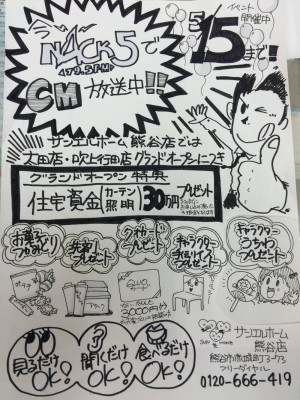 今
NACK5で
(79.5FM)
CM放送中!!
イベント
開催中
5/15まで!
サンエルホーム熊谷店では
太田店・吹上行田店グランドオープンにつき
グランドオープン特典
住宅資金 カーテン 照明 30万円プレゼント
お菓子
つめどり
洗剤
プレゼント
クオカード
プレゼント
キャラクター
プレゼント
キャラクター
うちわ
プレゼント
QUO
3000円分
見るだけ
OK!
聞くだけ
OK!
食べるだけ
OK!
サンエルホーム
熊谷店
フリーダイヤル
0120-666-419